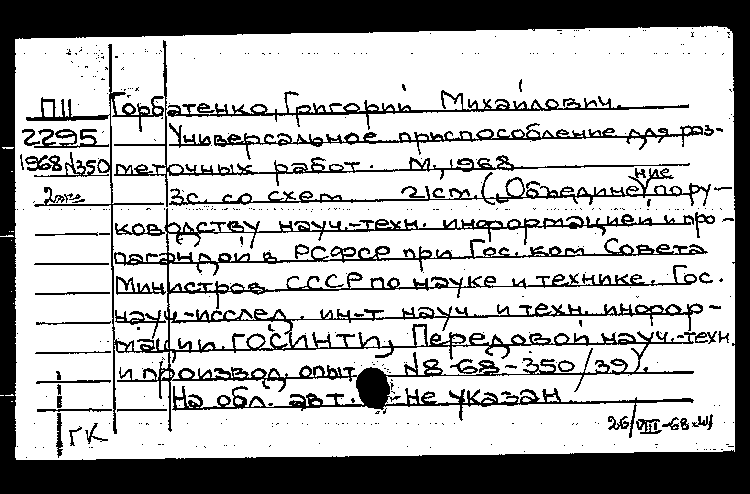 ПII Горбатенко, Григорий Михайлович.
2295 Универсальное приспособление для раз-
1968 N350 меточных работ. М., 1968
2 экз 3с. со схем 21см. („Объединение по ру-
ководству науч.-техн. информацией и про-
пагандой в РСФСР при Гос. ком Совета
Министров СССР по науке и технике. Гос.
науч.-исслед. ин-т науч. и техн. инфор-
мации. ГОСИНТИ, Передовой науч.-техн.
и производ. опыт N8-68-350/39).
На обл. авт. не указан
ГК 26/VIII-68